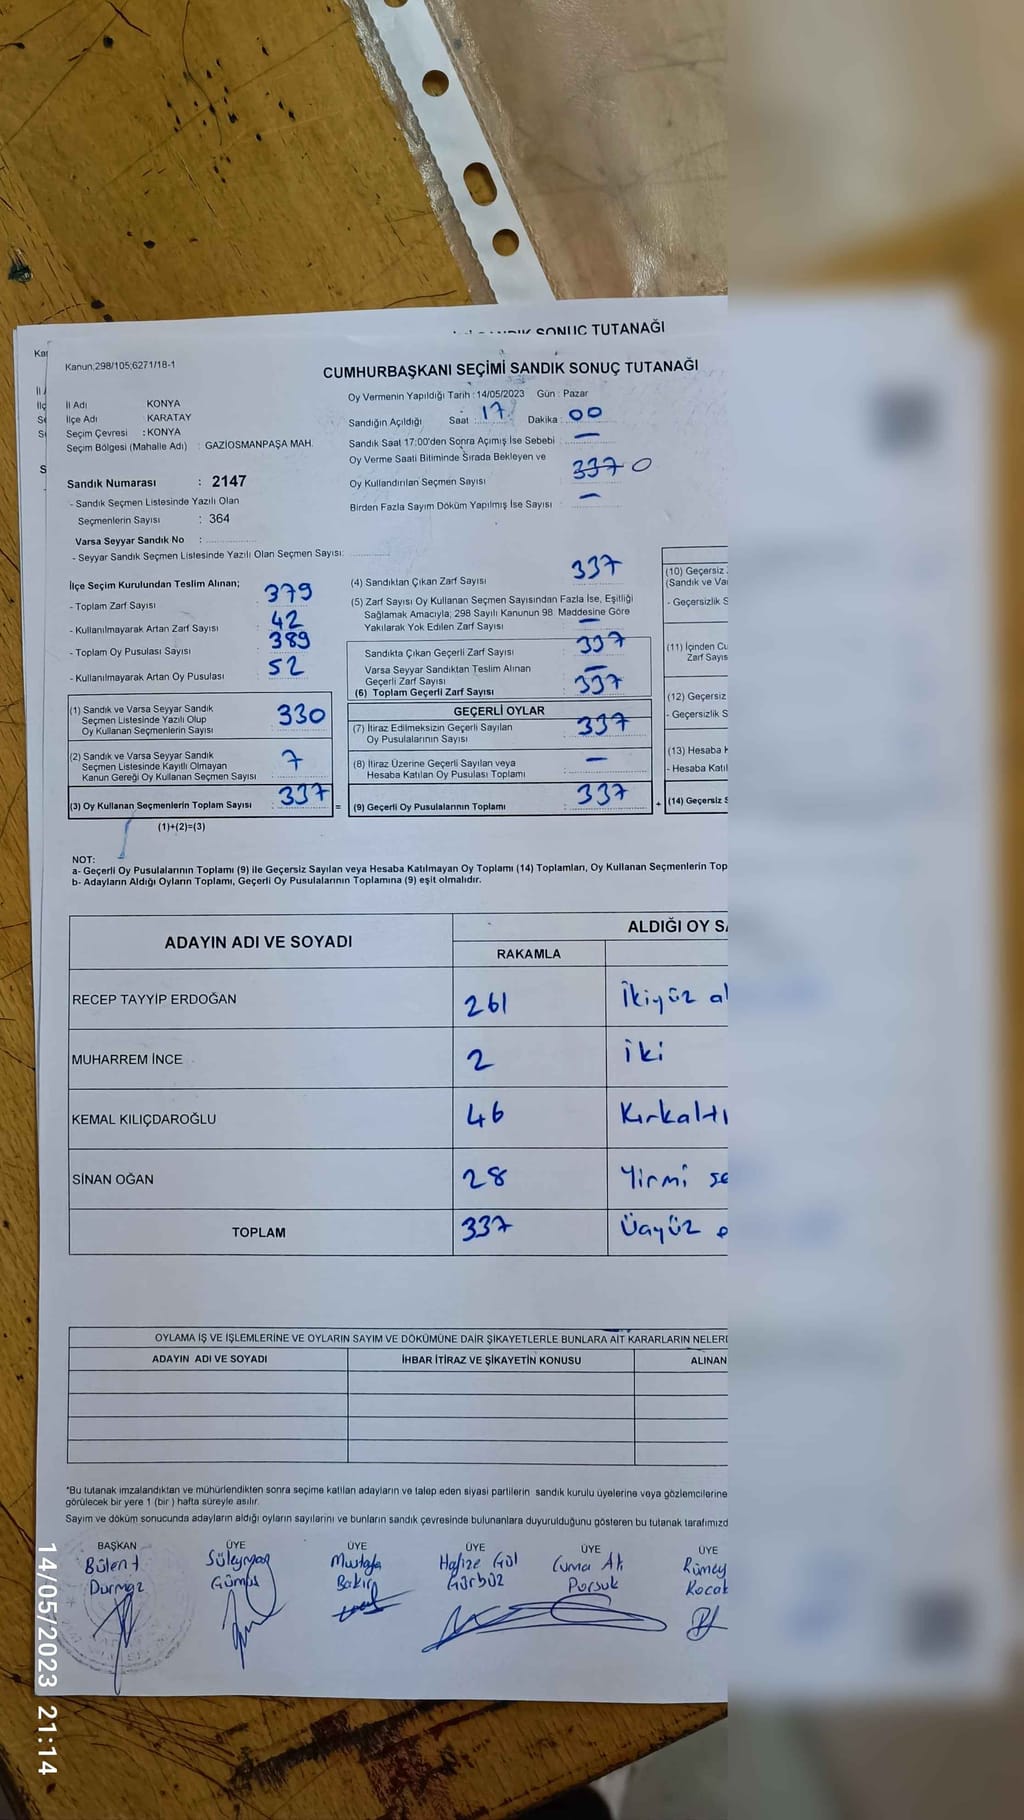 SANDIK SONUÇ TUTANAĞI
Kanun;298/105;6271/18-1
CUMHURBAŞKANI SEÇİMİ SANDIK SONUÇ TUTANAĞI
İl Adı KONYA
İlçe Adı : KARATAY
Seçim Çevresi : KONYA
Seçim Bölgesi (Mahalle Adı) : GAZİOSMANPAŞA MAH.
Sandık Numarası : 2147
- Sandık Seçmen Listesinde Yazılı Olan
Seçmenlerin Sayısı : 364
Varsa Seyyar Sandık No :
- Seyyar Sandık Seçmen Listesinde Yazılı Olan Seçmen Sayısı:
Oy Vermenin Yapıldığı Tarih : 14/05/2023 Gün : Pazar
Sandığın Açıldığı Saat : 17 Dakika : 00
Sandık Saat 17:00'den Sonra Açımış İse Sebebi : —
Oy Verme Saati Bitiminde Sırada Bekleyen ve
Oy Kullandırılan Seçmen Sayısı : 337 0
Birden Fazla Sayım Döküm Yapılmış İse Sayısı : —
İlçe Seçim Kurulundan Teslim Alınan;
- Toplam Zarf Sayısı 379
- Kullanılmayarak Artan Zarf Sayısı 42
- Toplam Oy Pusulası Sayısı 389
- Kullanılmayarak Artan Oy Pusulası 52
(1) Sandık ve Varsa Seyyar Sandık
Seçmen Listesinde Yazılı Olup
Oy Kullanan Seçmenlerin Sayısı 330
(2) Sandık ve Varsa Seyyar Sandık
Seçmen Listesinde Kayıtlı Olmayan
Kanun Gereği Oy Kullanan Seçmen Sayısı 7
(3) Oy Kullanan Seçmenlerin Toplam Sayısı : 337 =
(1)+(2)=(3)
(4) Sandıktan Çıkan Zarf Sayısı : 337
(5) Zarf Sayısı Oy Kullanan Seçmen Sayısından Fazla İse, Eşitliği
Sağlamak Amacıyla; 298 Sayılı Kanunun 98. Maddesine Göre
Yakılarak Yok Edilen Zarf Sayısı : —
Sandıkta Çıkan Geçerli Zarf Sayısı : 337
Varsa Seyyar Sandıktan Teslim Alınan
Geçerli Zarf Sayısı : —
(6) Toplam Geçerli Zarf Sayısı : 337
GEÇERLİ OYLAR
(7) İtiraz Edilmeksizin Geçerli Sayılan
Oy Pusulalarının Sayısı : 337
(8) İtiraz Üzerine Geçerli Sayılan veya
Hesaba Katılan Oy Pusulası Toplamı : —
(9) Geçerli Oy Pusulalarının Toplamı : 337 +
(10) Geçersiz
(Sandık ve Va
- Geçersizlik S
(11) İçinden Cu
Zarf Sayıs
(12) Geçersiz
- Geçersizlik S
(13) Hesaba K
- Hesaba Katıl
(14) Geçersiz S
NOT:
a- Geçerli Oy Pusulalarının Toplamı (9) ile Geçersiz Sayılan veya Hesaba Katılmayan Oy Toplamı (14) Toplamları, Oy Kullanan Seçmenlerin Top
b- Adayların Aldığı Oyların Toplamı, Geçerli Oy Pusulalarının Toplamına (9) eşit olmalıdır.
ADAYIN ADI VE SOYADI ALDIĞI OY SA
RAKAMLA
RECEP TAYYİP ERDOĞAN 261 İkiyüz al
MUHARREM İNCE 2 iki
KEMAL KILIÇDAROĞLU 46 Kırkaltı
SİNAN OĞAN 28 Yirmi se
TOPLAM 337 Üçyüz
OYLAMA İŞ VE İŞLEMLERİNE VE OYLARIN SAYIM VE DÖKÜMÜNE DAİR ŞİKAYETLERLE BUNLARA AİT KARARLARIN NELERİ
ADAYIN ADI VE SOYADI İHBAR İTİRAZ VE ŞİKAYETİN KONUSU ALINAN
*Bu tutanak imzalandıktan ve mühürlendikten sonra seçime katılan adayların ve talep eden siyasi partilerin sandık kurulu üyelerine veya gözlemcilerine
görülecek bir yere 1 (bir ) hafta süreyle asılır.
Sayım ve döküm sonucunda adayların aldığı oyların sayılarını ve bunların sandık çevresinde bulunanlara duyurulduğunu gösteren bu tutanak tarafımızd
BAŞKAN ÜYE ÜYE ÜYE ÜYE ÜYE
Bülent Süleyman Mustafa Hafize Gül Cuma Ali Rümey
Durmaz Gümüş Bakır Gürbüz Porsuk Kocak
14/05/2023 21:14